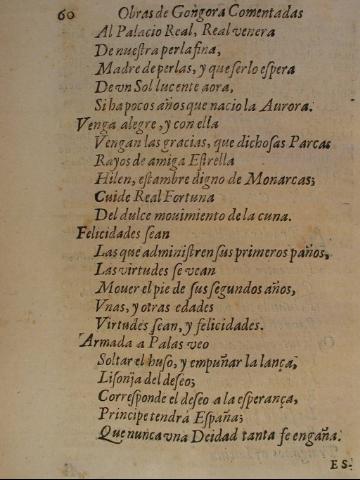 60 Obras de Gongora Comentadas
Al Palacio Real, Real venera
De nuestra perla fina,
Madre de perlas, y que serlo espera
De vn Sol lucente aora,
Si ha pocos años que nacio la Aurora.
Venga alegre, y con ella
Vengan las gracias, que dichosas Parcas
Rayos de amiga Estrella
Hilen, estambre digno de Monarcas;
Cuide Real Fortuna
Del dulce mouimiento de la cuna.
Felicidades sean
Las que administren sus primeros paños,
Las virtudes se vean
Mouer el pie de sus segundos años,
Vnas, y otras edades
Virtudes sean, y felicidades.
Armada a Palas veo
Soltar el huso, y empuñar la lança,
Lisonja del deseo;
Corresponde el deseo a la esperança,
Principe tendrà España;
Que nunca vna Deidad tanta fe engaña.
ES-